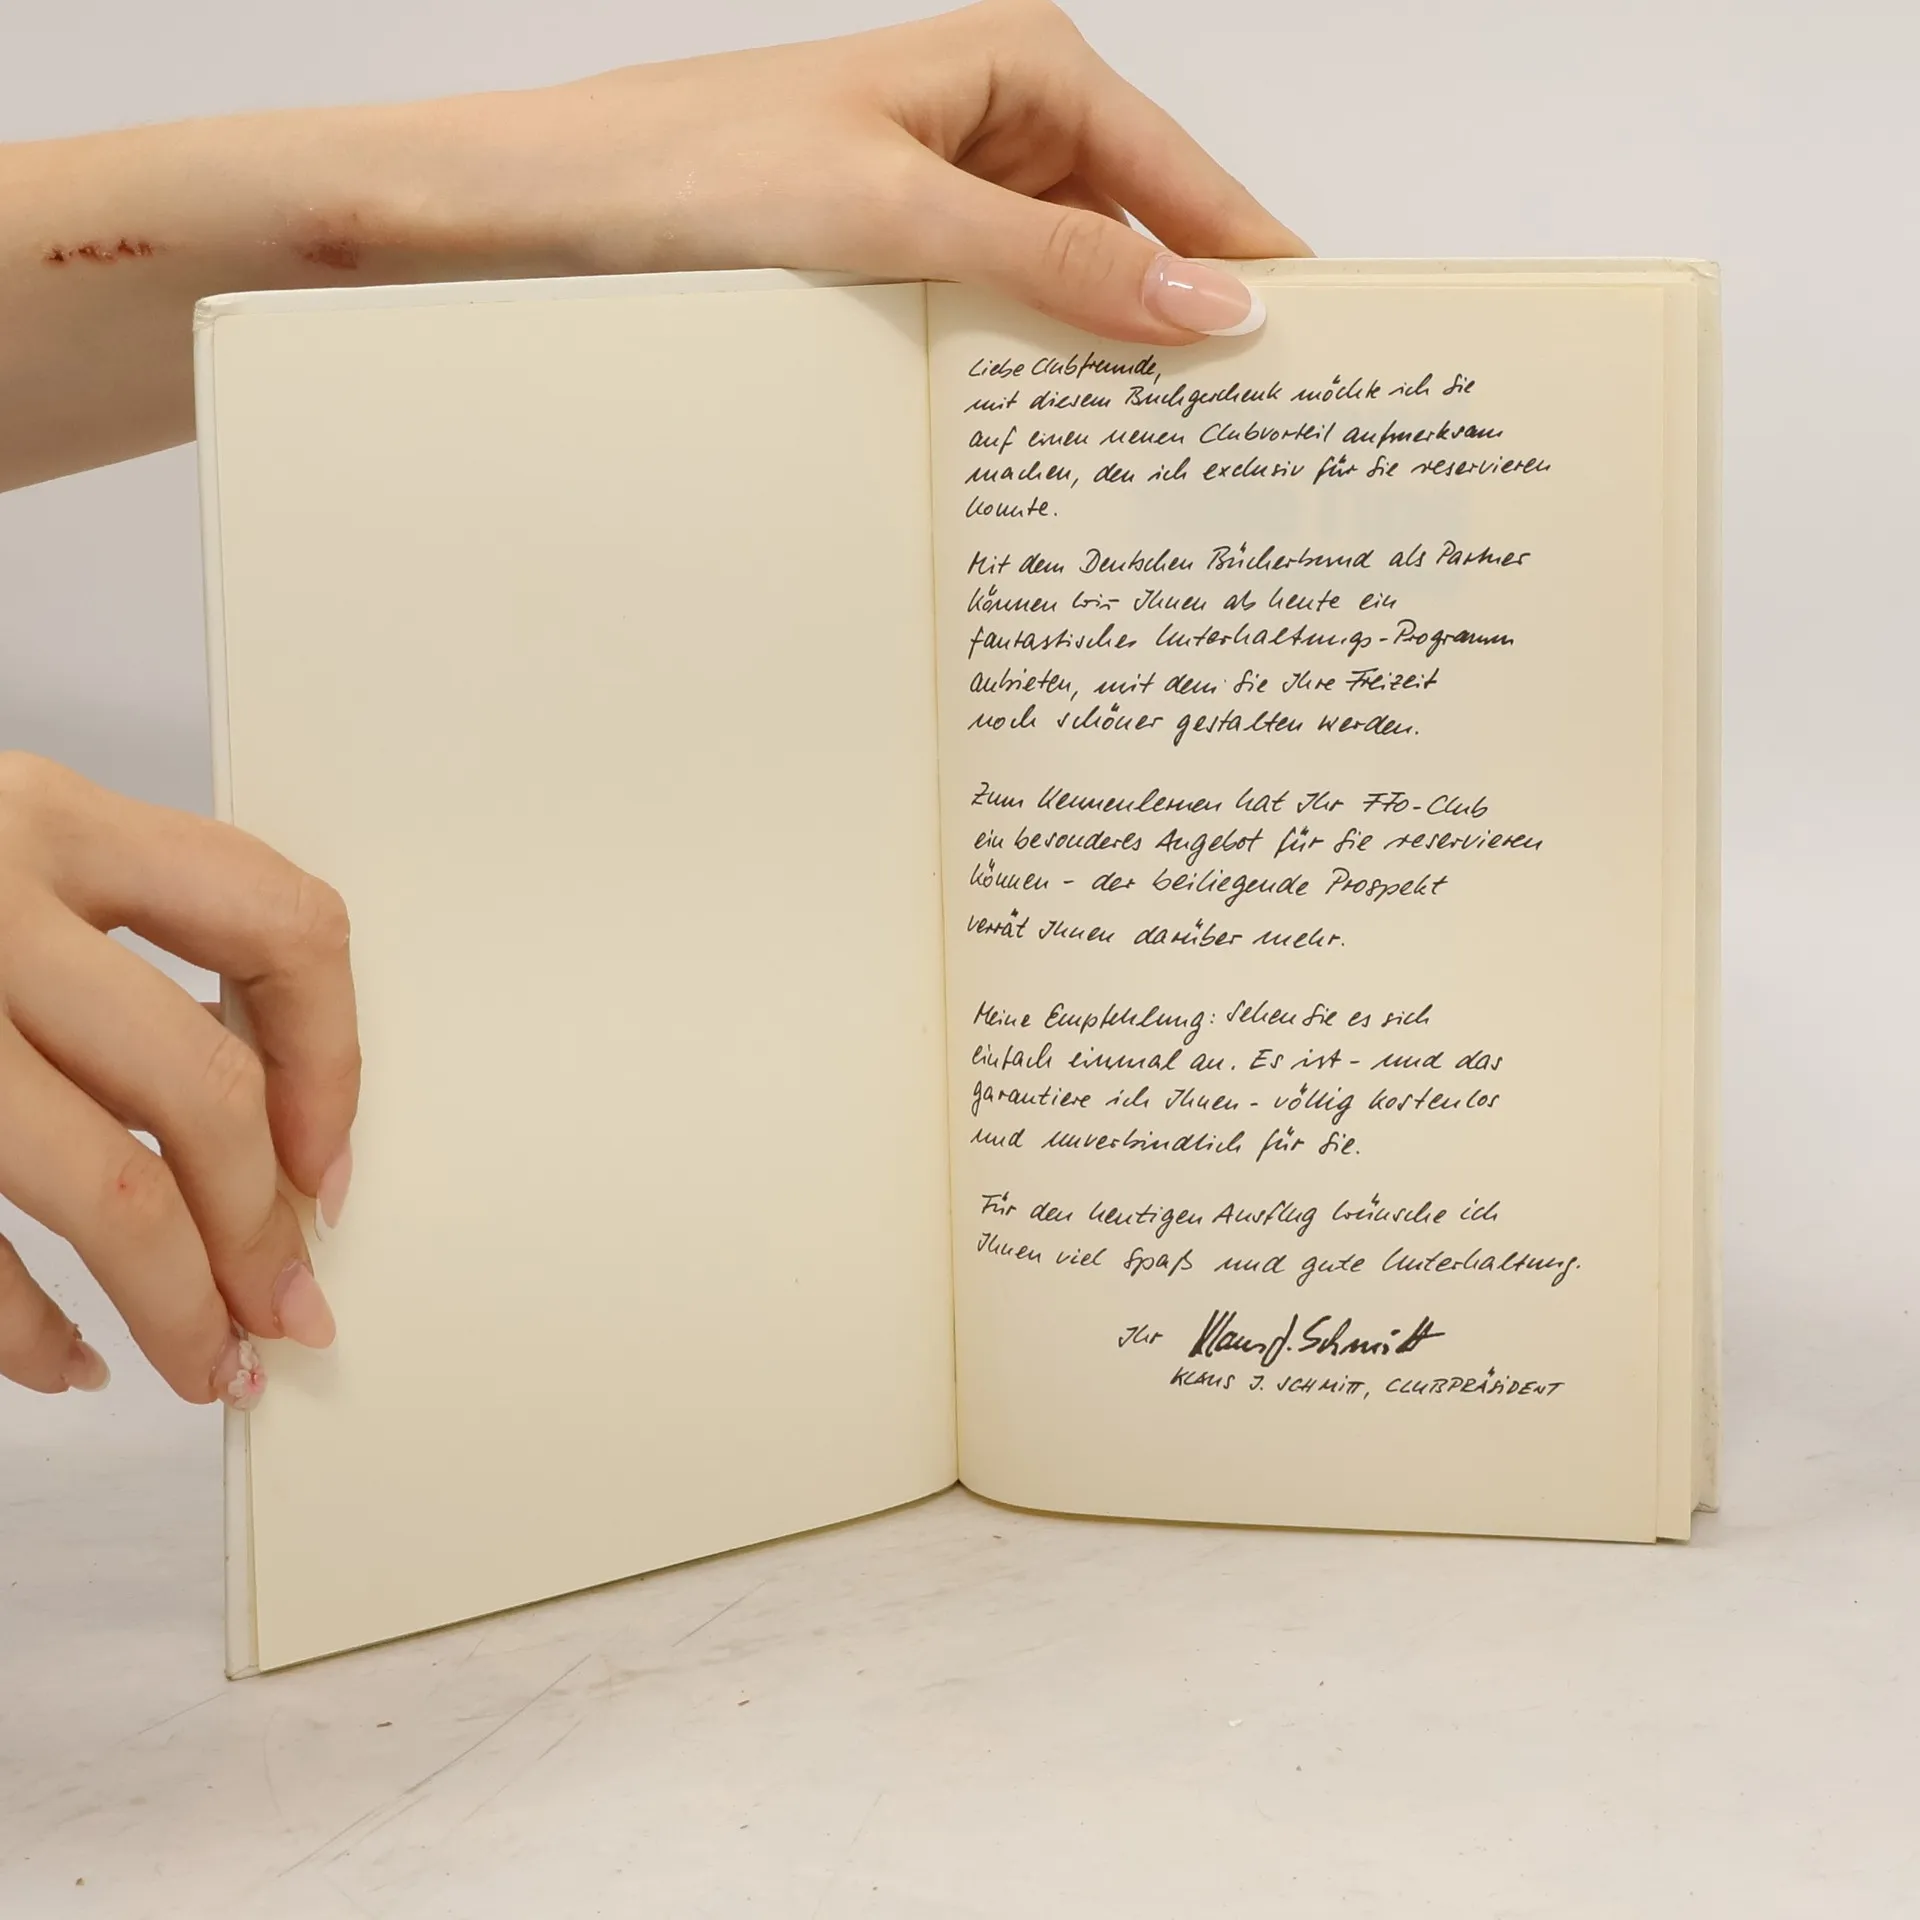 Liebe Clubfreunde,
mit diesem Buchgeschenk möchte ich Sie
auf einen neuen Clubvorteil aufmerksam
machen, den ich exclusiv für Sie reservieren
konnte.
Mit dem Deutschen Bücherbund als Partner
können wir Ihnen ab heute ein
fantastisches Unterhaltungs-Programm
anbieten, mit dem Sie Ihre Freizeit
noch schöner gestalten werden.
Zum Kennenlernen hat Ihr FFO-Club
ein besonderes Angebot für Sie reservieren
können - der beiliegende Prospekt
verrät Ihnen darüber mehr.
Meine Empfehlung: Sehen Sie es sich
einfach einmal an. Es ist - und das
garantiere ich Ihnen - völlig kostenlos
und unverbindlich für Sie.
Für den heutigen Ausflug wünsche ich
Ihnen viel Spaß und gute Unterhaltung.
Ihr Klaus J. Schmitt
KLAUS J. SCHMITT, CLUBPRÄSIDENT